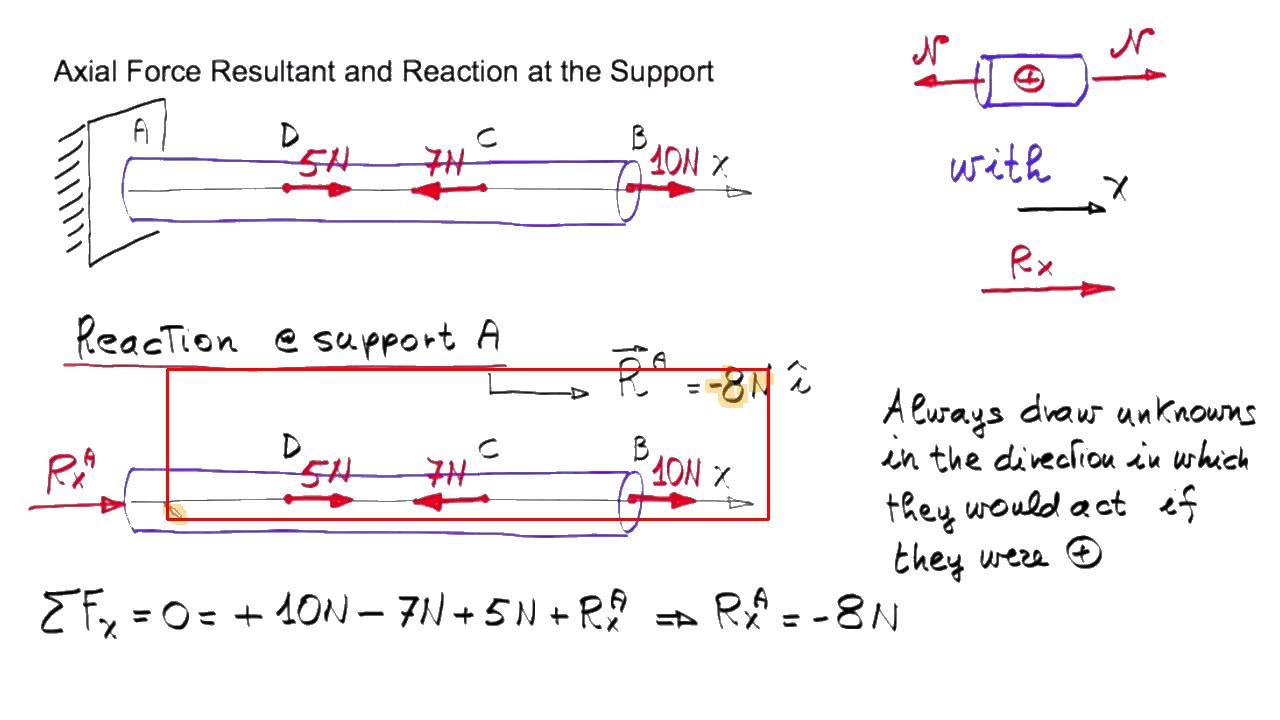 Axial Force Resultant and Reaction at the Support
N N
+
with
x
Rx
A D C B
5N 7N 10N x
Reaction @ support A
R^A = -8N î
D C B
Rx^A 5N 7N 10N x
Always draw unknowns
in the direction in which
they would act if
they were ⊕
ΣFx = 0 = + 10N – 7N + 5N + Rx^A ⇒ Rx^A = -8N